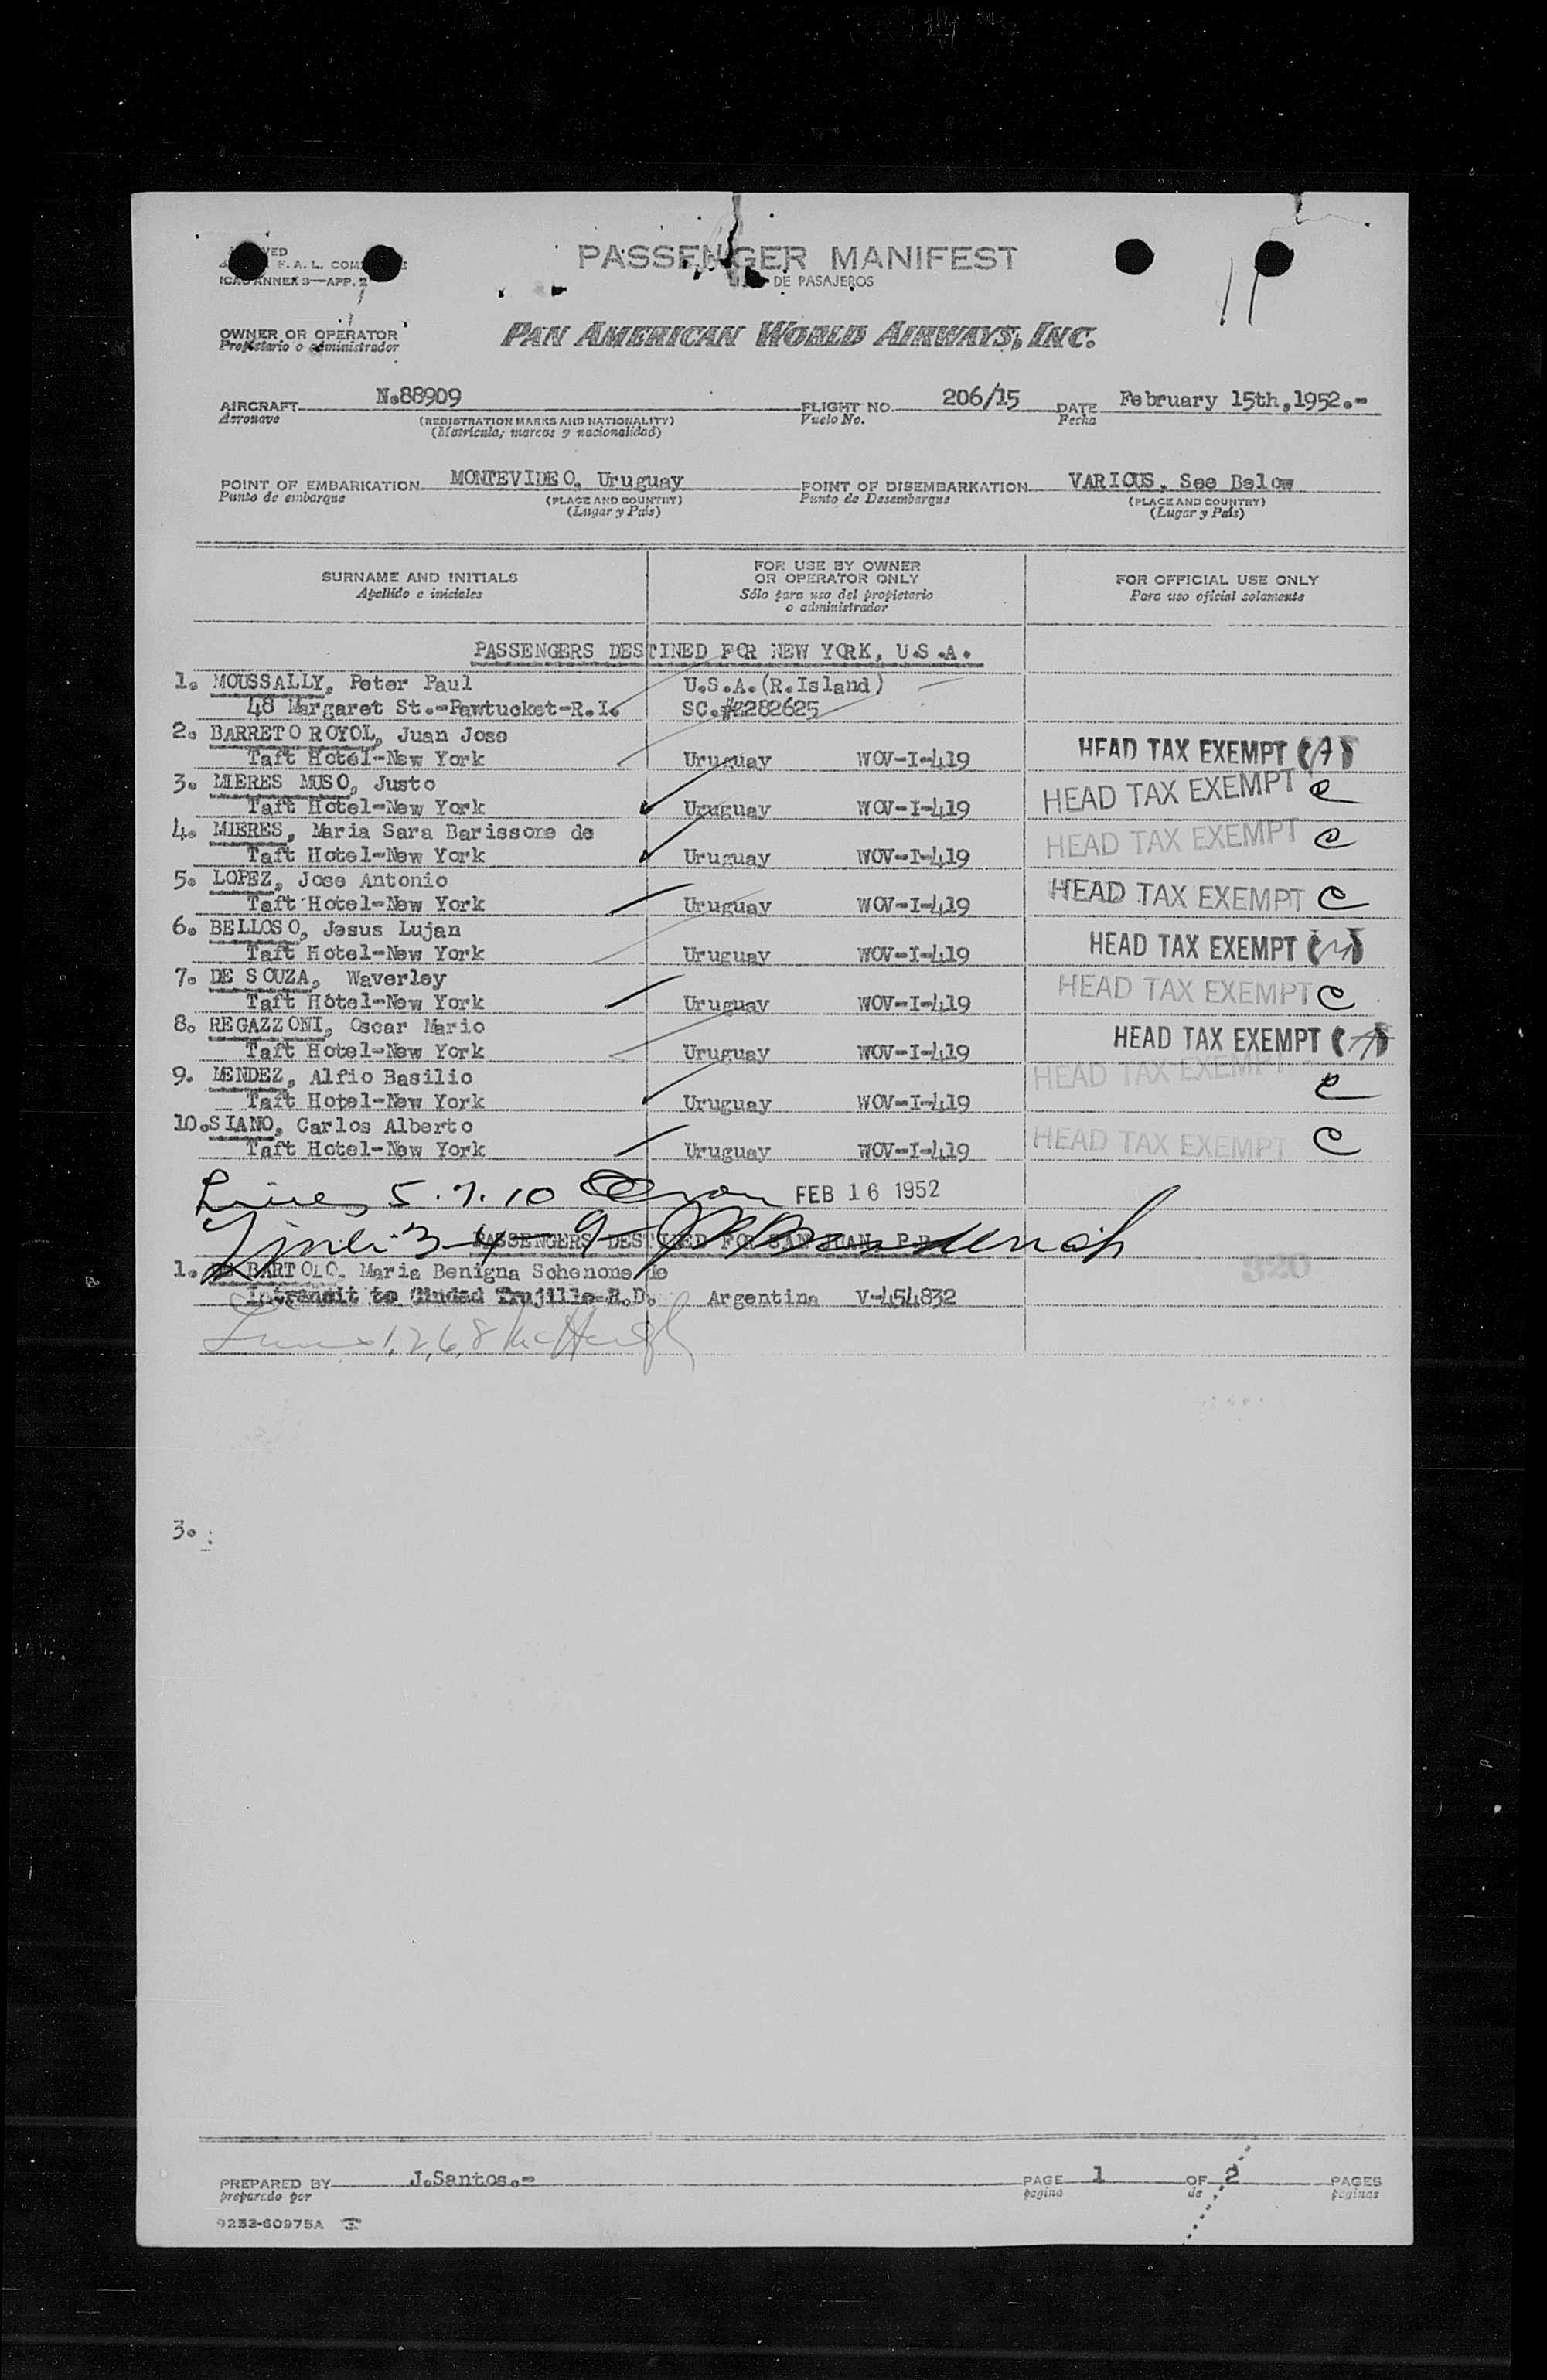 PASSENGER MANIFEST
F. A. L.
ICAO ANNEX 9—APP. 2
DE PASAJEROS
OWNER OR OPERATOR
Propietario o administrador
PAN AMERICAN WORLD AIRWAYS, INC.
AIRCRAFT N.88909 FLIGHT NO. 206/15 DATE February 15th,1952.-
Aeronave (REGISTRATION MARKS AND NATIONALITY) Vuelo No. Fecha
(Matrícula, marcas y nacionalidad)
POINT OF EMBARKATION MONTEVIDEO, Uruguay POINT OF DISEMBARKATION VARIOUS, See Below
Punto de embarque (PLACE AND COUNTRY) Punto de Desembarque (PLACE AND COUNTRY)
(Lugar y País) (Lugar y País)
SURNAME AND INITIALS
Apellido e iniciales
FOR USE BY OWNER
OR OPERATOR ONLY
Sólo para uso del propietario
o administrador
FOR OFFICIAL USE ONLY
Para uso oficial solamente
PASSENGERS DESTINED FOR NEW YORK, U.S.A.
1. MOUSSALLY, Peter Paul U.S.A.(R.Island)
48 Margaret St.-Pawtucket-R.I. SC.#2282625
2. BARRETO ROYOL, Juan Jose
Taft Hotel-New York Uruguay WOV-I-419 HEAD TAX EXEMPT (A)
3. MIERES MUSO, Justo
Taft Hotel-New York Uruguay WOV-I-419 HEAD TAX EXEMPT C
4. MIERES, Maria Sara Barissone de
Taft Hotel-New York Uruguay WOV-I-419 HEAD TAX EXEMPT C
5. LOPEZ, Jose Antonio
Taft Hotel-New York Uruguay WOV-I-419 HEAD TAX EXEMPT C
6. BELLOSO, Jesus Lujan
Taft Hotel-New York Uruguay WOV-I-419 HEAD TAX EXEMPT
7. DE SOUZA, Waverley
Taft Hotel-New York Uruguay WOV-I-419 HEAD TAX EXEMPT C
8. REGAZZONI, Oscar Mario
Taft Hotel-New York Uruguay WOV-I-419 HEAD TAX EXEMPT (A)
9. MENDEZ, Alfio Basilio
Taft Hotel-New York Uruguay WOV-I-419 HEAD TAX EXEMPT C
10.SIANO, Carlos Alberto
Taft Hotel-New York Uruguay WOV-I-419 HEAD TAX EXEMPT C
Lines 5.7.10 FEB 16 1952
Lines 3-4-9
PASSENGERS DESTINED FOR SAN JUAN, P.R.
1. DE BARTOLO, Maria Benigna Schenone de 320
Intransit to Ciudad Trujillo-R.D. Argentina V-454832
Lines 1,2,6,8 McHugh
3.
PREPARED BY J.Santos.- PAGE 1 OF 2 PAGES
preparado por pagina de paginas
9233-60975A